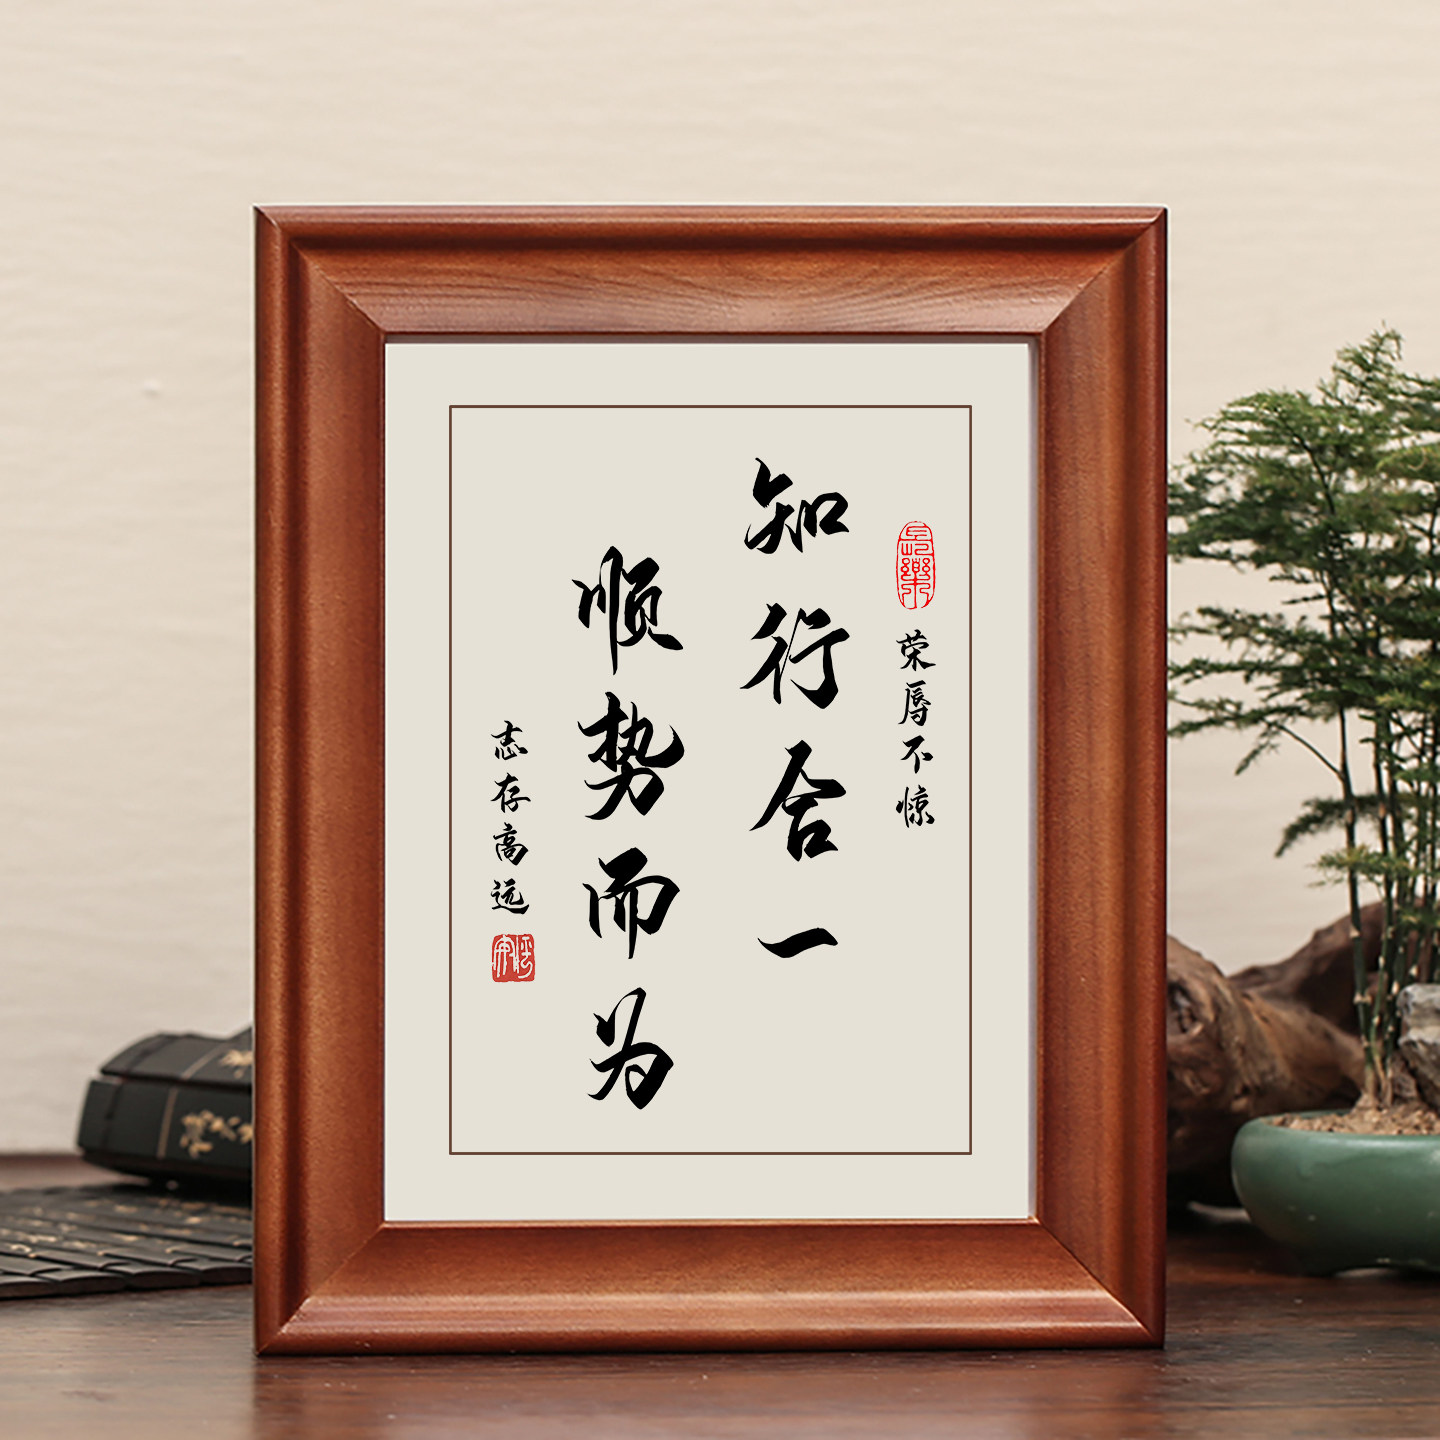 荣辱不惊
知行合一
顺势而为
志存高远